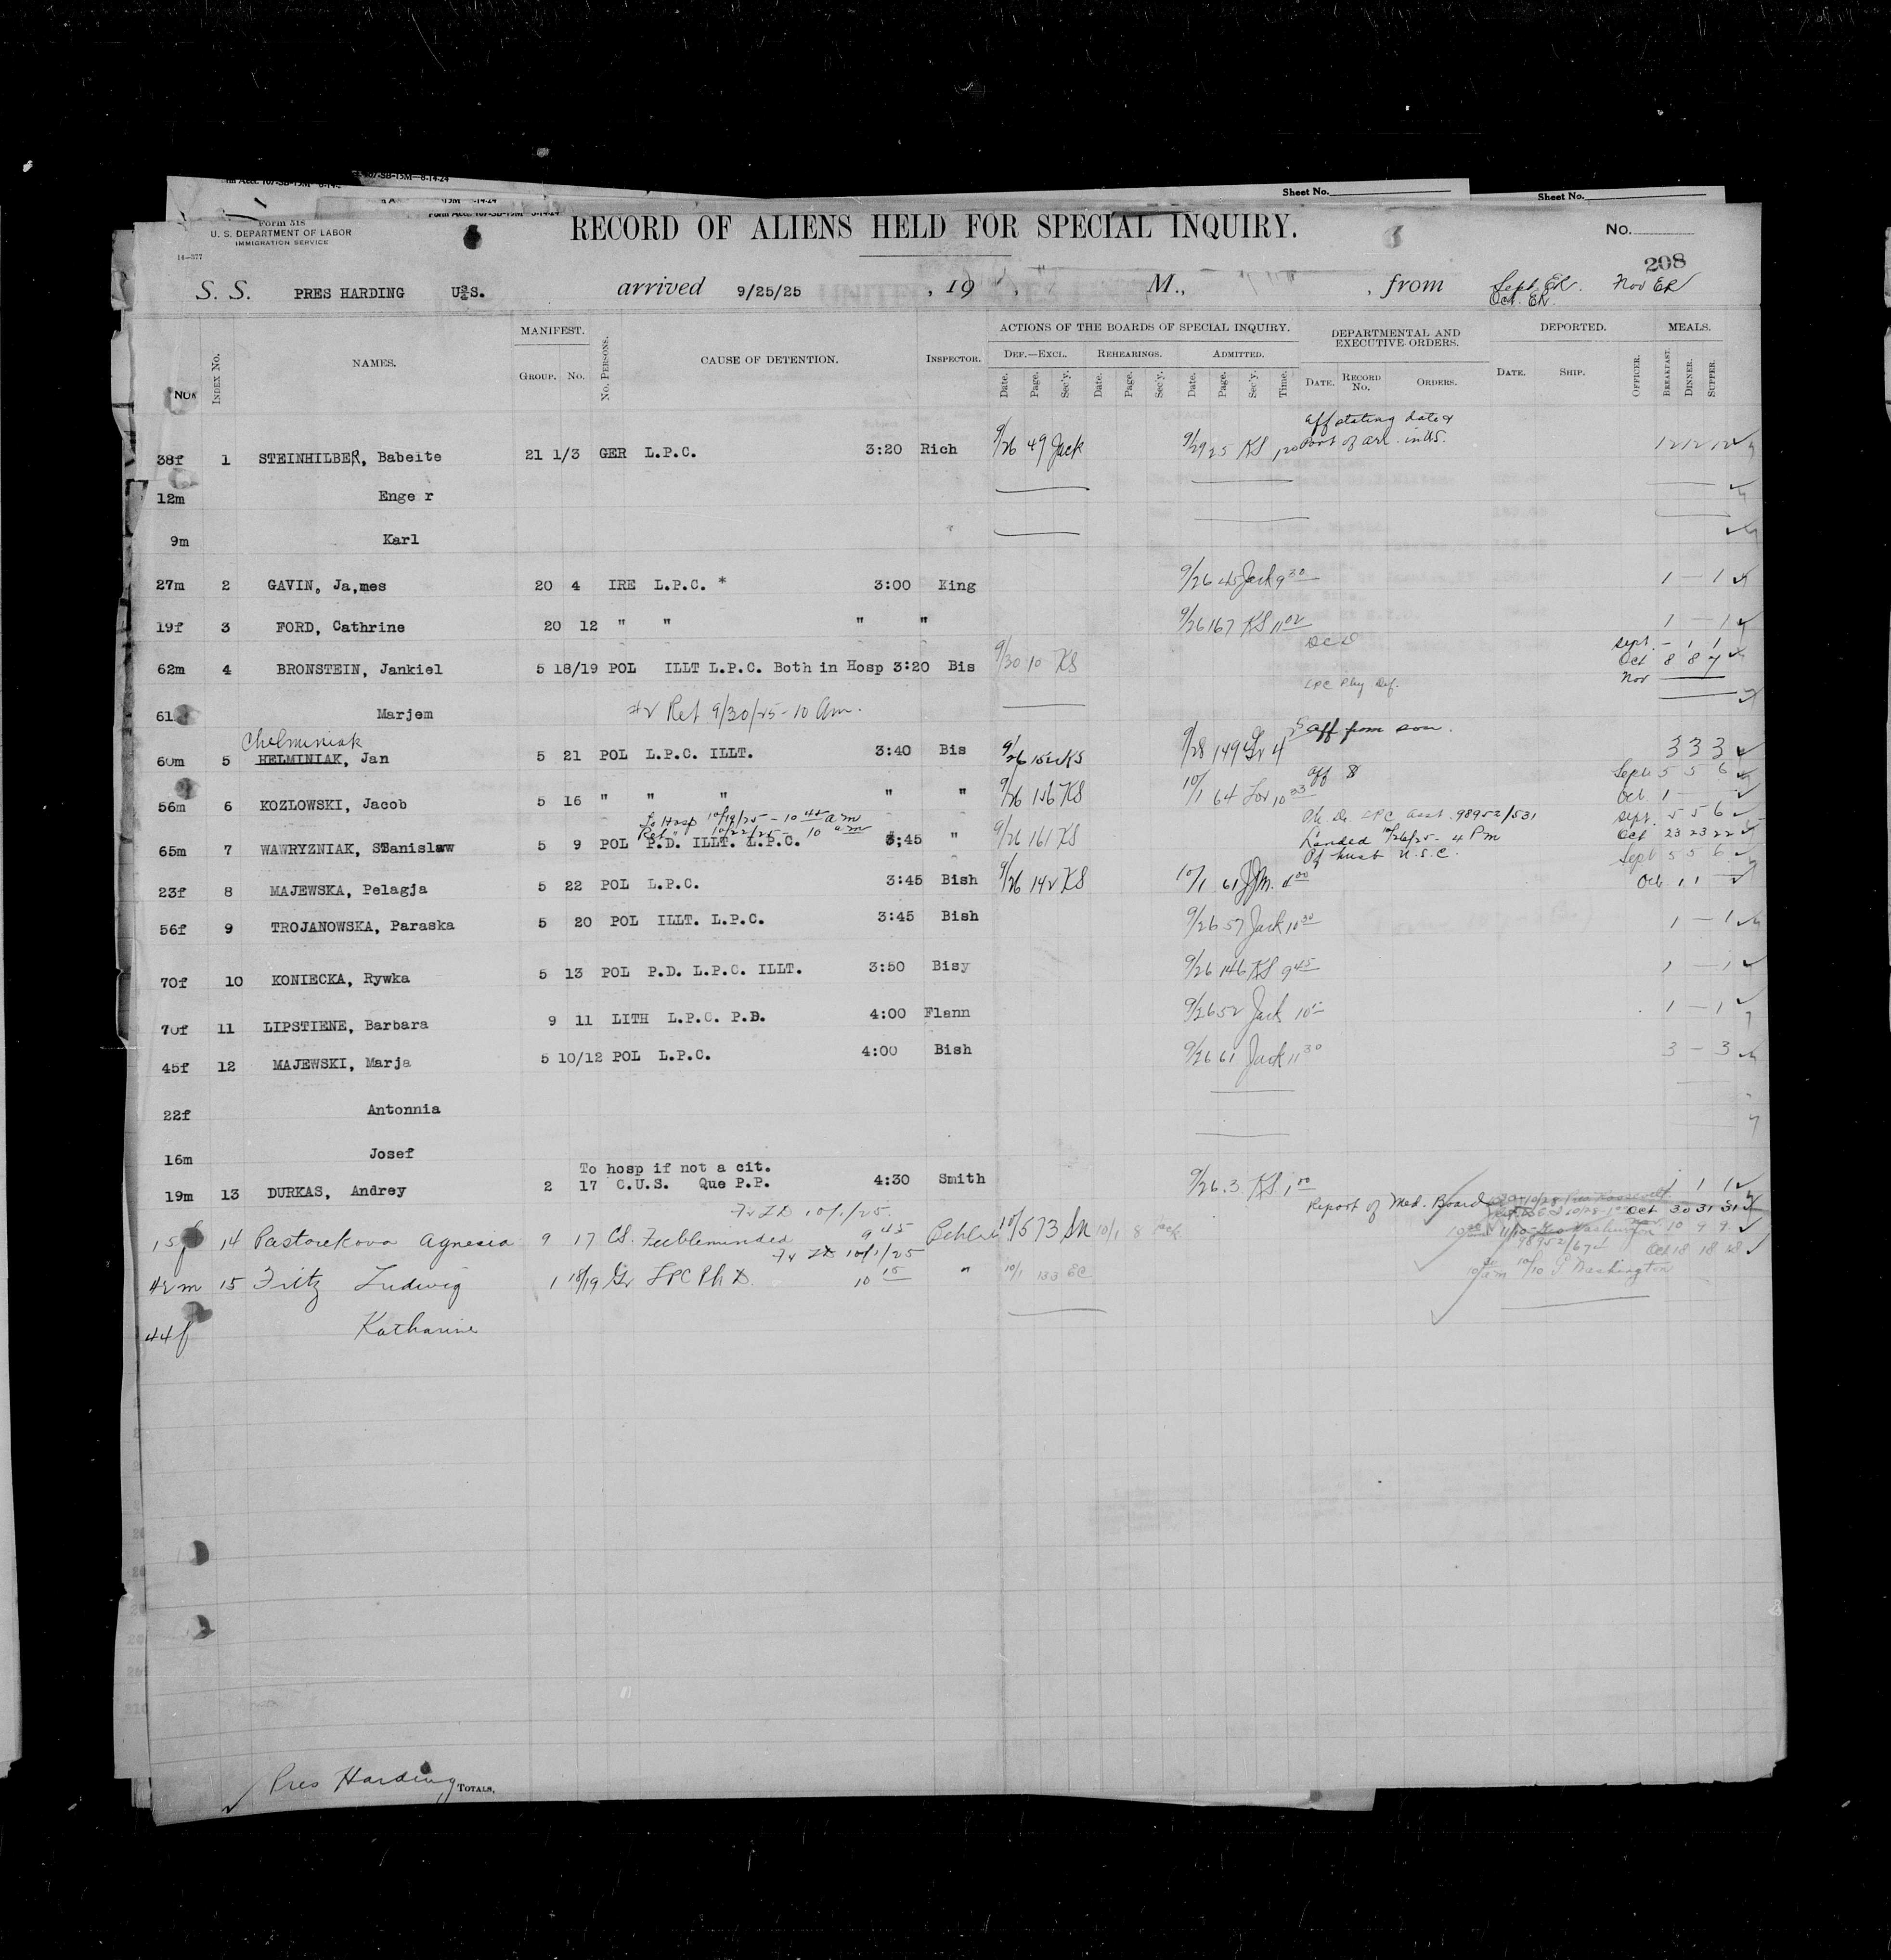 Sheet No.
Sheet No.
Form 518
U. S. DEPARTMENT OF LABOR
IMMIGRATION SERVICE
14—377
RECORD OF ALIENS HELD FOR SPECIAL INQUIRY.
No.
208
S. S. PRES HARDING U.S. arrived 9/25/25 , 19 , M., , from Sept. ER. Nov ER
Oct. ER.
No. INDEX No. NAMES. MANIFEST. GROUP. No. No. PERSONS. CAUSE OF DETENTION. INSPECTOR. ACTIONS OF THE BOARDS OF SPECIAL INQUIRY. DEF.—EXCL. REHEARINGS. ADMITTED. DEPARTMENTAL AND EXECUTIVE ORDERS. DEPORTED. MEALS.
Date. Page. Sec'y. Date. Page. Sec'y. Date. Page. Sec'y. Time. DATE. RECORD No. ORDERS. DATE. SHIP. OFFICER. BREAKFAST. DINNER. SUPPER.
aff stating date &
38f 1 STEINHILBER, Babeite 21 1/3 GER L.P.C. 3:20 Rich 9/26 49 Jack 9/29 25 KS Port of arr. in US. 12 12 12
12m Enge r
9m Karl
27m 2 GAVIN, Ja,mes 20 4 IRE L.P.C. * 3:00 King 9/26 45 Jack 9 30 1 — 1
19f 3 FORD, Cathrine 20 12 " " " " 9/26 167 KS 11 00 1 — 1
Sept. — 1 1
62m 4 BRONSTEIN, Jankiel 5 18/19 POL ILLT L.P.C. Both in Hosp 3:20 Bis 9/30 10 KS Oct 8 8 7
LPC Phy Def. Nov
61 Marjem Ret 9/30/25 - 10 Am.
Chelminiak
60m 5 HELMINIAK, Jan 5 21 POL L.P.C. ILLT. 3:40 Bis 9/26 152 KS 9/28 149 Gr 4 aff from son. 3 3 3
Sept 5 5 6
56m 6 KOZLOWSKI, Jacob 5 16 " " " " " 9/26 156 KS 10/1 64 aff Oct 1 —
To Hosp 10/19/25 - 10 45 am
Ret " 10/22/25 - 10 am LPC 98952/531 Sept. 5 5 6
65m 7 WAWRYZNIAK, STanislaw 5 9 POL P.D. ILLT. L.P.C. 3;45 " 9/26 161 KS Landed 10/26/25 - 4 Pm Oct 23 23 22
Sept 5 5 6
23f 8 MAJEWSKA, Pelagja 5 22 POL L.P.C. 3:45 Bish 9/26 142 KS 10/1 61 Oct 1 1
56f 9 TROJANOWSKA, Paraska 5 20 POL ILLT. L.P.C. 3:45 Bish 9/26 57 Jack 10 30 1 — 1
70f 10 KONIECKA, Rywka 5 13 POL P.D. L.P.C. ILLT. 3:50 Bisy 9/26 146 KS 9 45 1 — 1
70f 11 LIPSTIENE, Barbara 9 11 LITH L.P.C. P.D. 4:00 Flann 9/26 52 Jack 1 — 1
45f 12 MAJEWSKI, Marja 5 10/12 POL L.P.C. 4:00 Bish 9/26 61 Jack 11 30 3 — 3
22f Antonnia
16m Josef
To hosp if not a cit.
19m 13 DURKAS, Andrey 2 17 C.U.S. Que P.P. 4:30 Smith 9/26 3 KS 1 00 1 1 1
10/1/25 Report of Med. Board Oct 30 31 31
15f 14 Pastorekova Agnesia 9 17 CS. Feebleminded 9 45 10/5 73 10/1 8 Jack 10 9 9
10/1/25 98952/ Oct 18 18 18
42m 15 Fritz Ludwig 1 18/19 Gr LPC Ph D. 10 15 " 10/1 133 EC 10/10 Washington
44f Katharine
Pres Harding TOTALS.